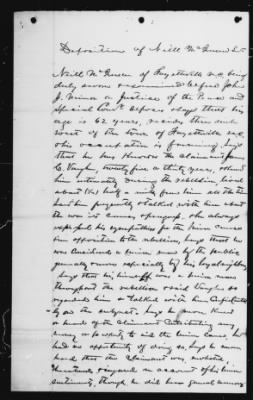 Deposition of Neill McQueen Sr
Neill McQueen of Fayetteville N.C. being
duly sworn & examined before John
J. Minor a Justice of the Peace and
Special Com^r deposes & says that his
age is 62 years, resides three miles
west of the town of Fayetteville N.C.
His occupation is farming. Says
that he has known the claimant James
C. Vaughn, twenty five or thirty years, known
him intimately. During the rebellion lived
about (½) half a mile from him all the time
had him frequently & talked with him about
the war its causes & progress. He always
expressed his sympathies for the Union cause
his opposition to the rebellion, says that he
was considered a Union man by the public
generally & more especially by his neighbors
Says that he himself was a Union man
throughout the rebellion & said Vaughn so
regarded him & talked with him confidential-
ly on the subject. Says he never knew
or heard of the claimant contributing any
money or property to aid the Union cause he
had no opportunity of doing so, says he never
heard that the claimant was molested
threatened or injured on account of his Union
sentiments, though he did have general